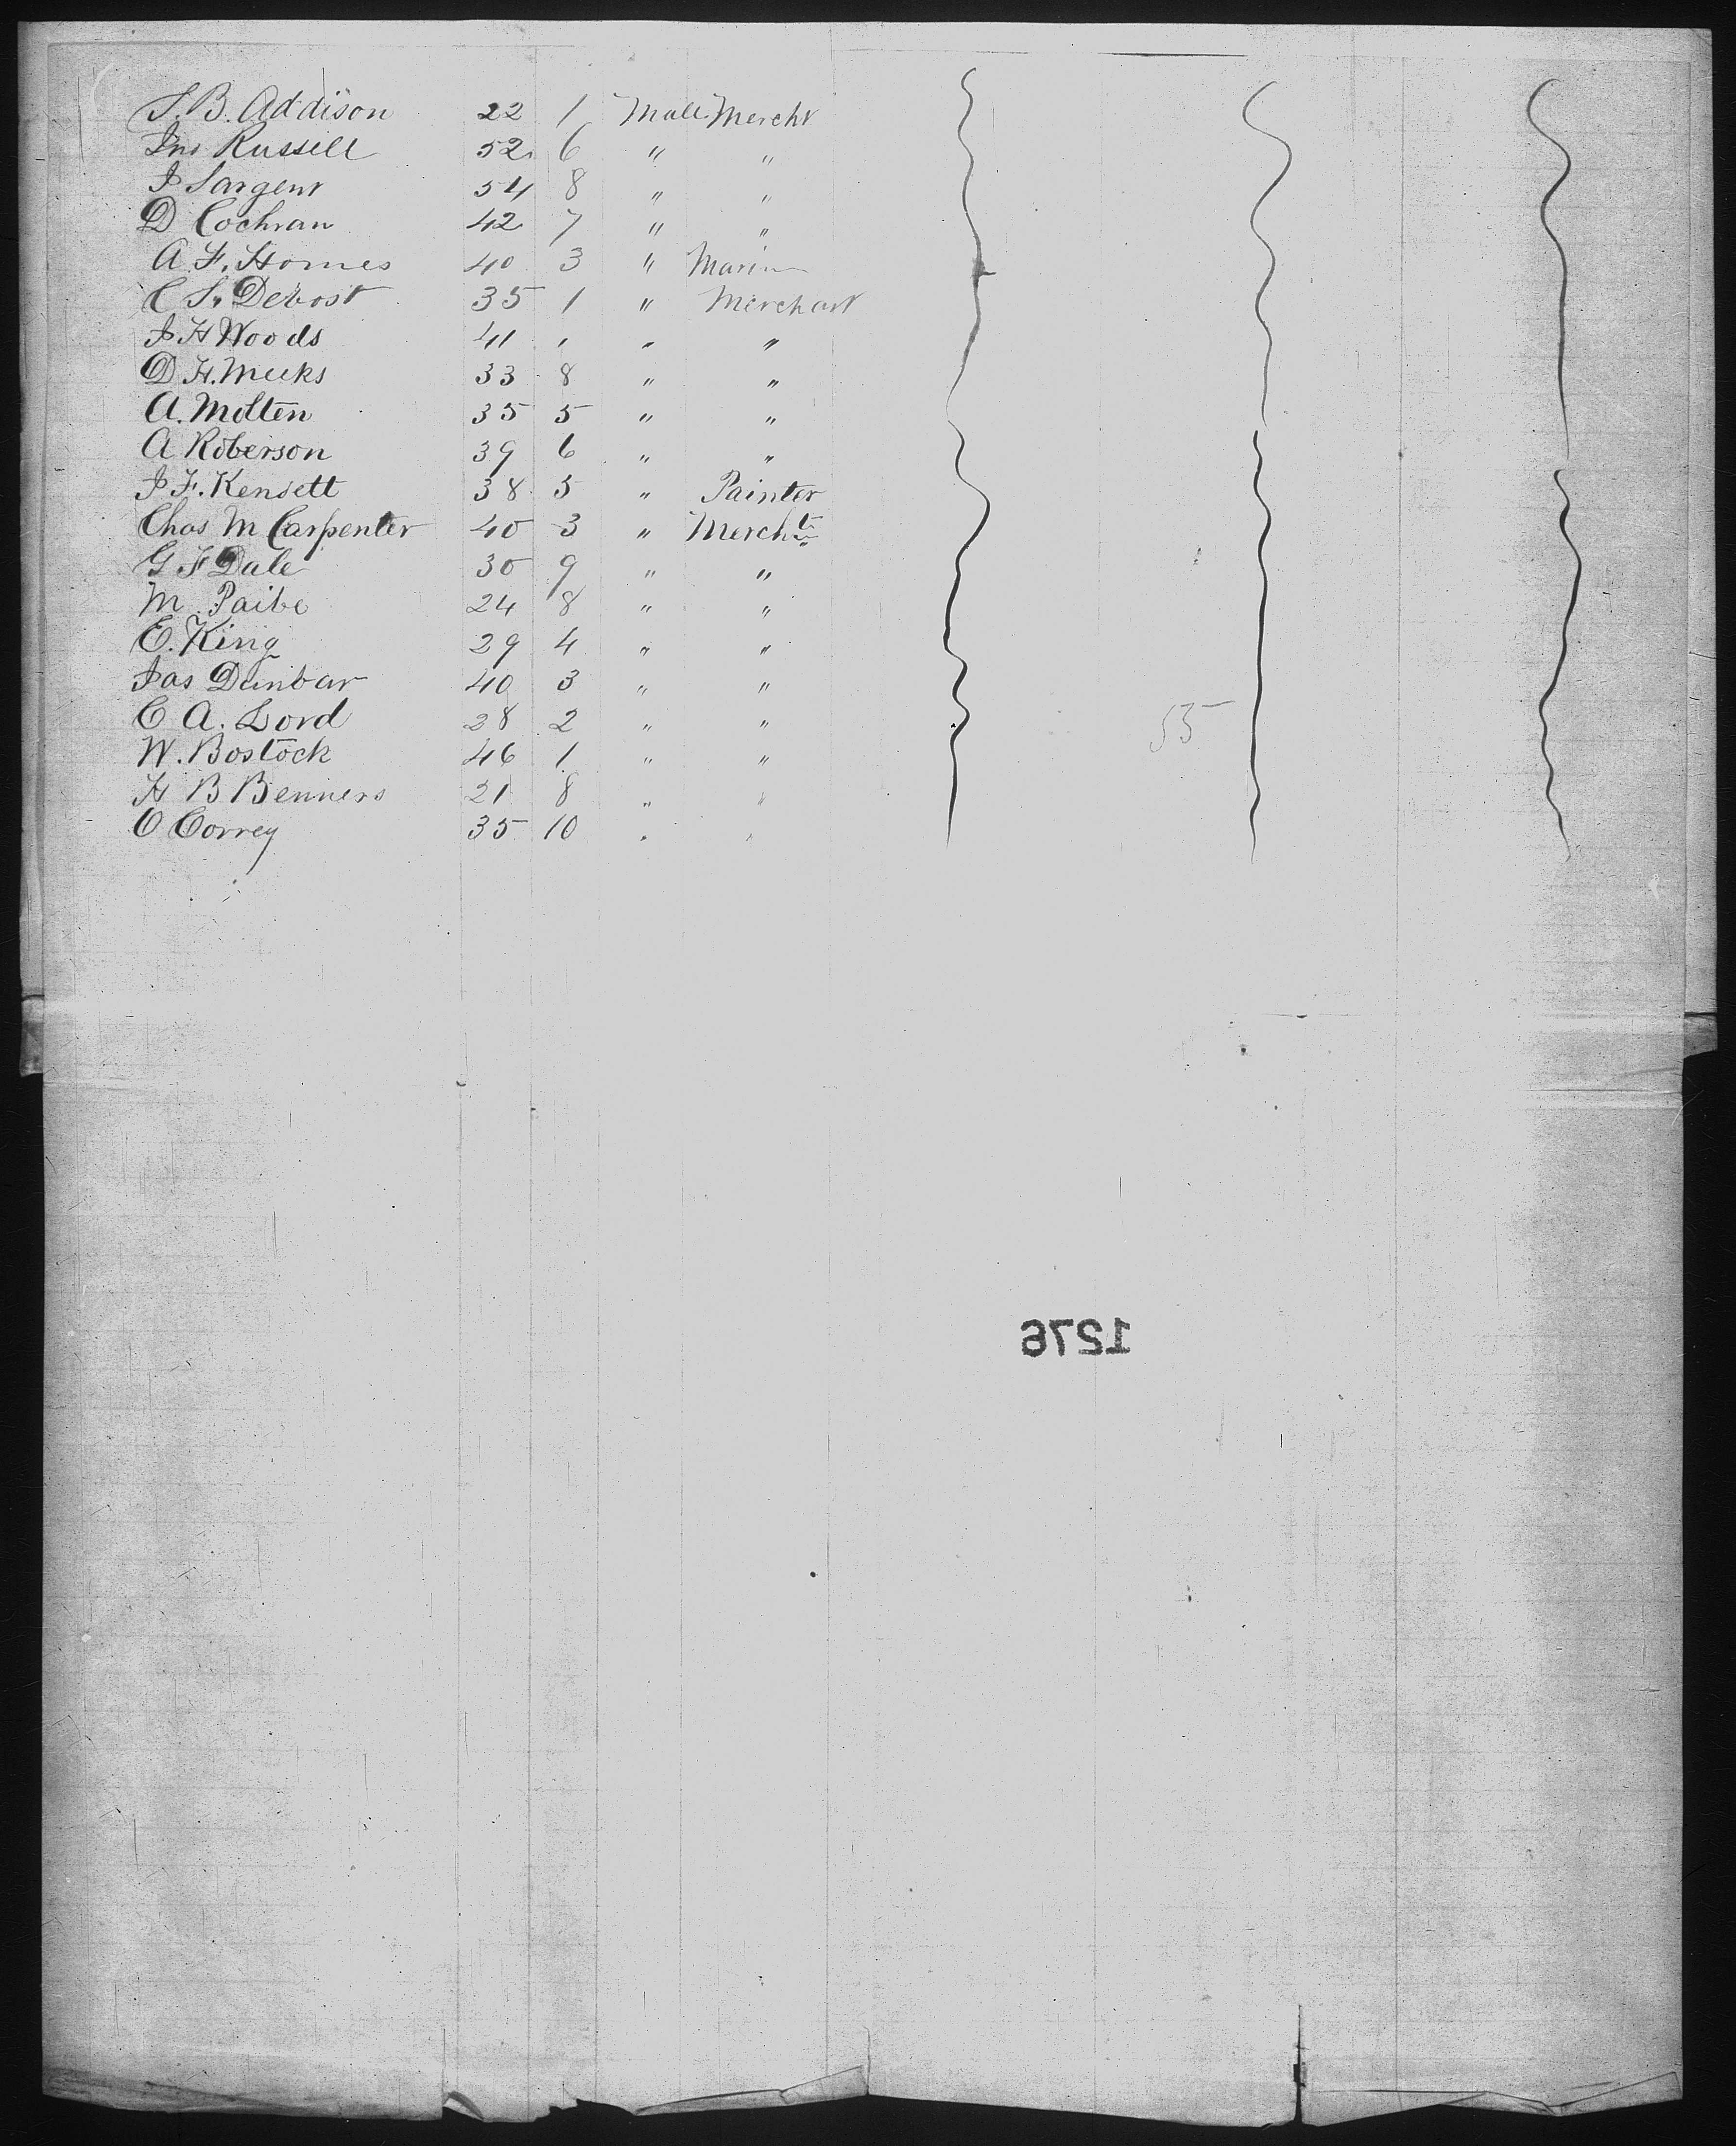 S. B. Addison 22 1 Male Mercht
Jno Russell 52 6 " "
J Sargent 54 8 " "
D Cochran 42 7 " "
A. F. Homes 40 3 " Marin
C S. Debost 35 1 " Merchant
J H Woods 41 " " "
D. H. Meeks 33 8 " "
A. Molten 35 5 " "
A Roberson 39 6 " "
J F. Kensett 38 5 " Painter
Chas M Carpenter 40 3 " Mercht
G F Dale 30 9 " "
M Paibe 24 8 " "
E. King 29 4 " "
Jas Dunbar 40 3 " "
C A. Lord 28 2 " "
53
W. Bostock 46 1 " "
H B Benners 21 8 " "
C Correy 35 10 " "
1276